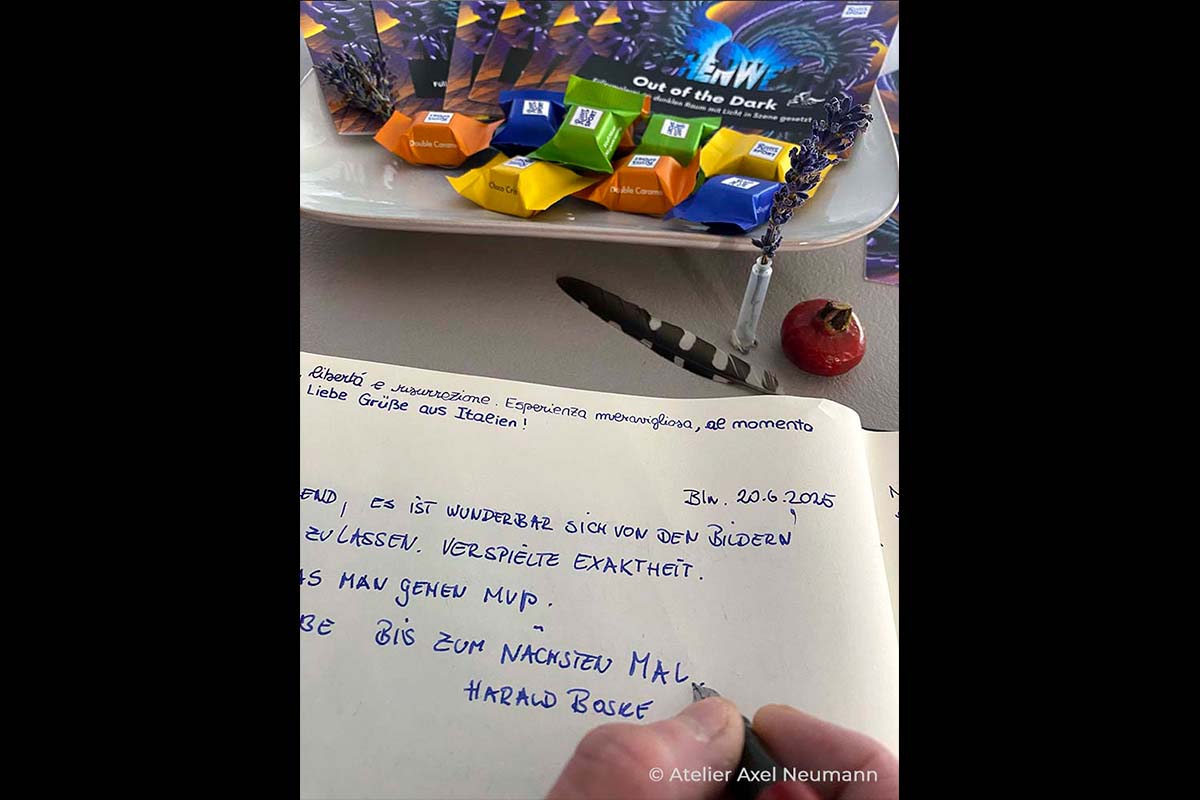 HENWE
Out of the Dark
Füllermalerei im dunklen Raum mit Licht in Szene gesetzt
Double Caramel
RITTER SPORT
Choco Cri
Double Carame
libertá e risurrezione. Esperienza meravigliosa, al momento
Liebe Grüße aus Italien!
Bln. 20.6.2025
END, ES IST WUNDERBAR SICH VON DEN BILDERN
ZU LASSEN. VERSPIELTE EXAKTHEIT.
AS MAN GEHEN MUß.
BE BIS ZUM NÄCHSTEN MAL.
HARALD BOSKE
© Atelier Axel Neumann